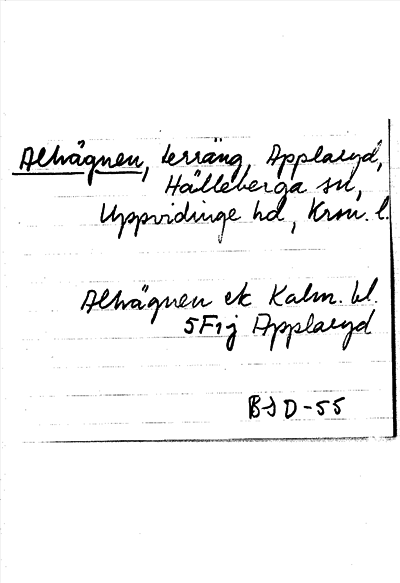 Alhägnen, terräng, Applaryd,
Hälleberga sn,
Uppvidinge hd, Kron. l.
Alhägnen ek Kalm. bl.
5F1j Applaryd
BJD-55